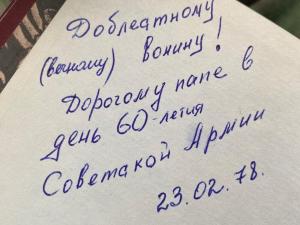 Доблеатному
вонину!
Дорогому папе в
день 60-летия
Советакой Армии
23.02.78.